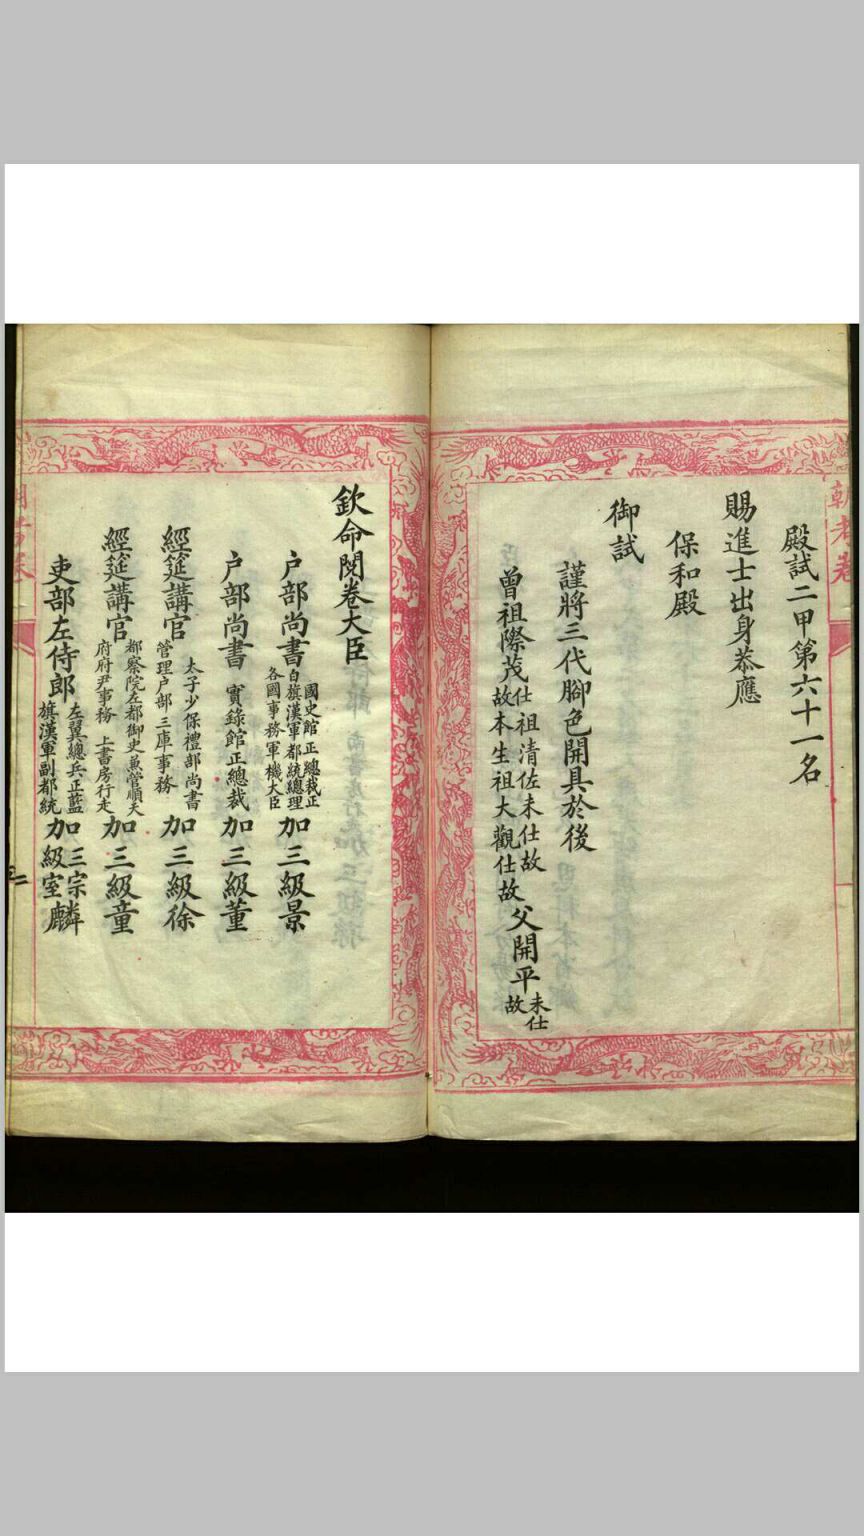 朝考卷
殿試二甲第六十一名
賜進士出身恭應
保和殿
御試
謹將三代腳色開具於後
曾祖際茂仕故 祖清佐未仕故 本生祖大觀仕故 父開平未仕故
欽命閱卷大臣
户部尚書國史館正總裁正白旗漢軍都統總理各國事務軍機大臣加三級景
户部尚書實錄館正總裁加三級董
經筵講官太子少保禮部尚書管理户部三庫事務加三級徐
經筵講官都察院左都御史兼管順天府府尹事務上書房行走加三級童
吏部左侍郎左翼總兵正藍旗漢軍副都統加三級宗室麟